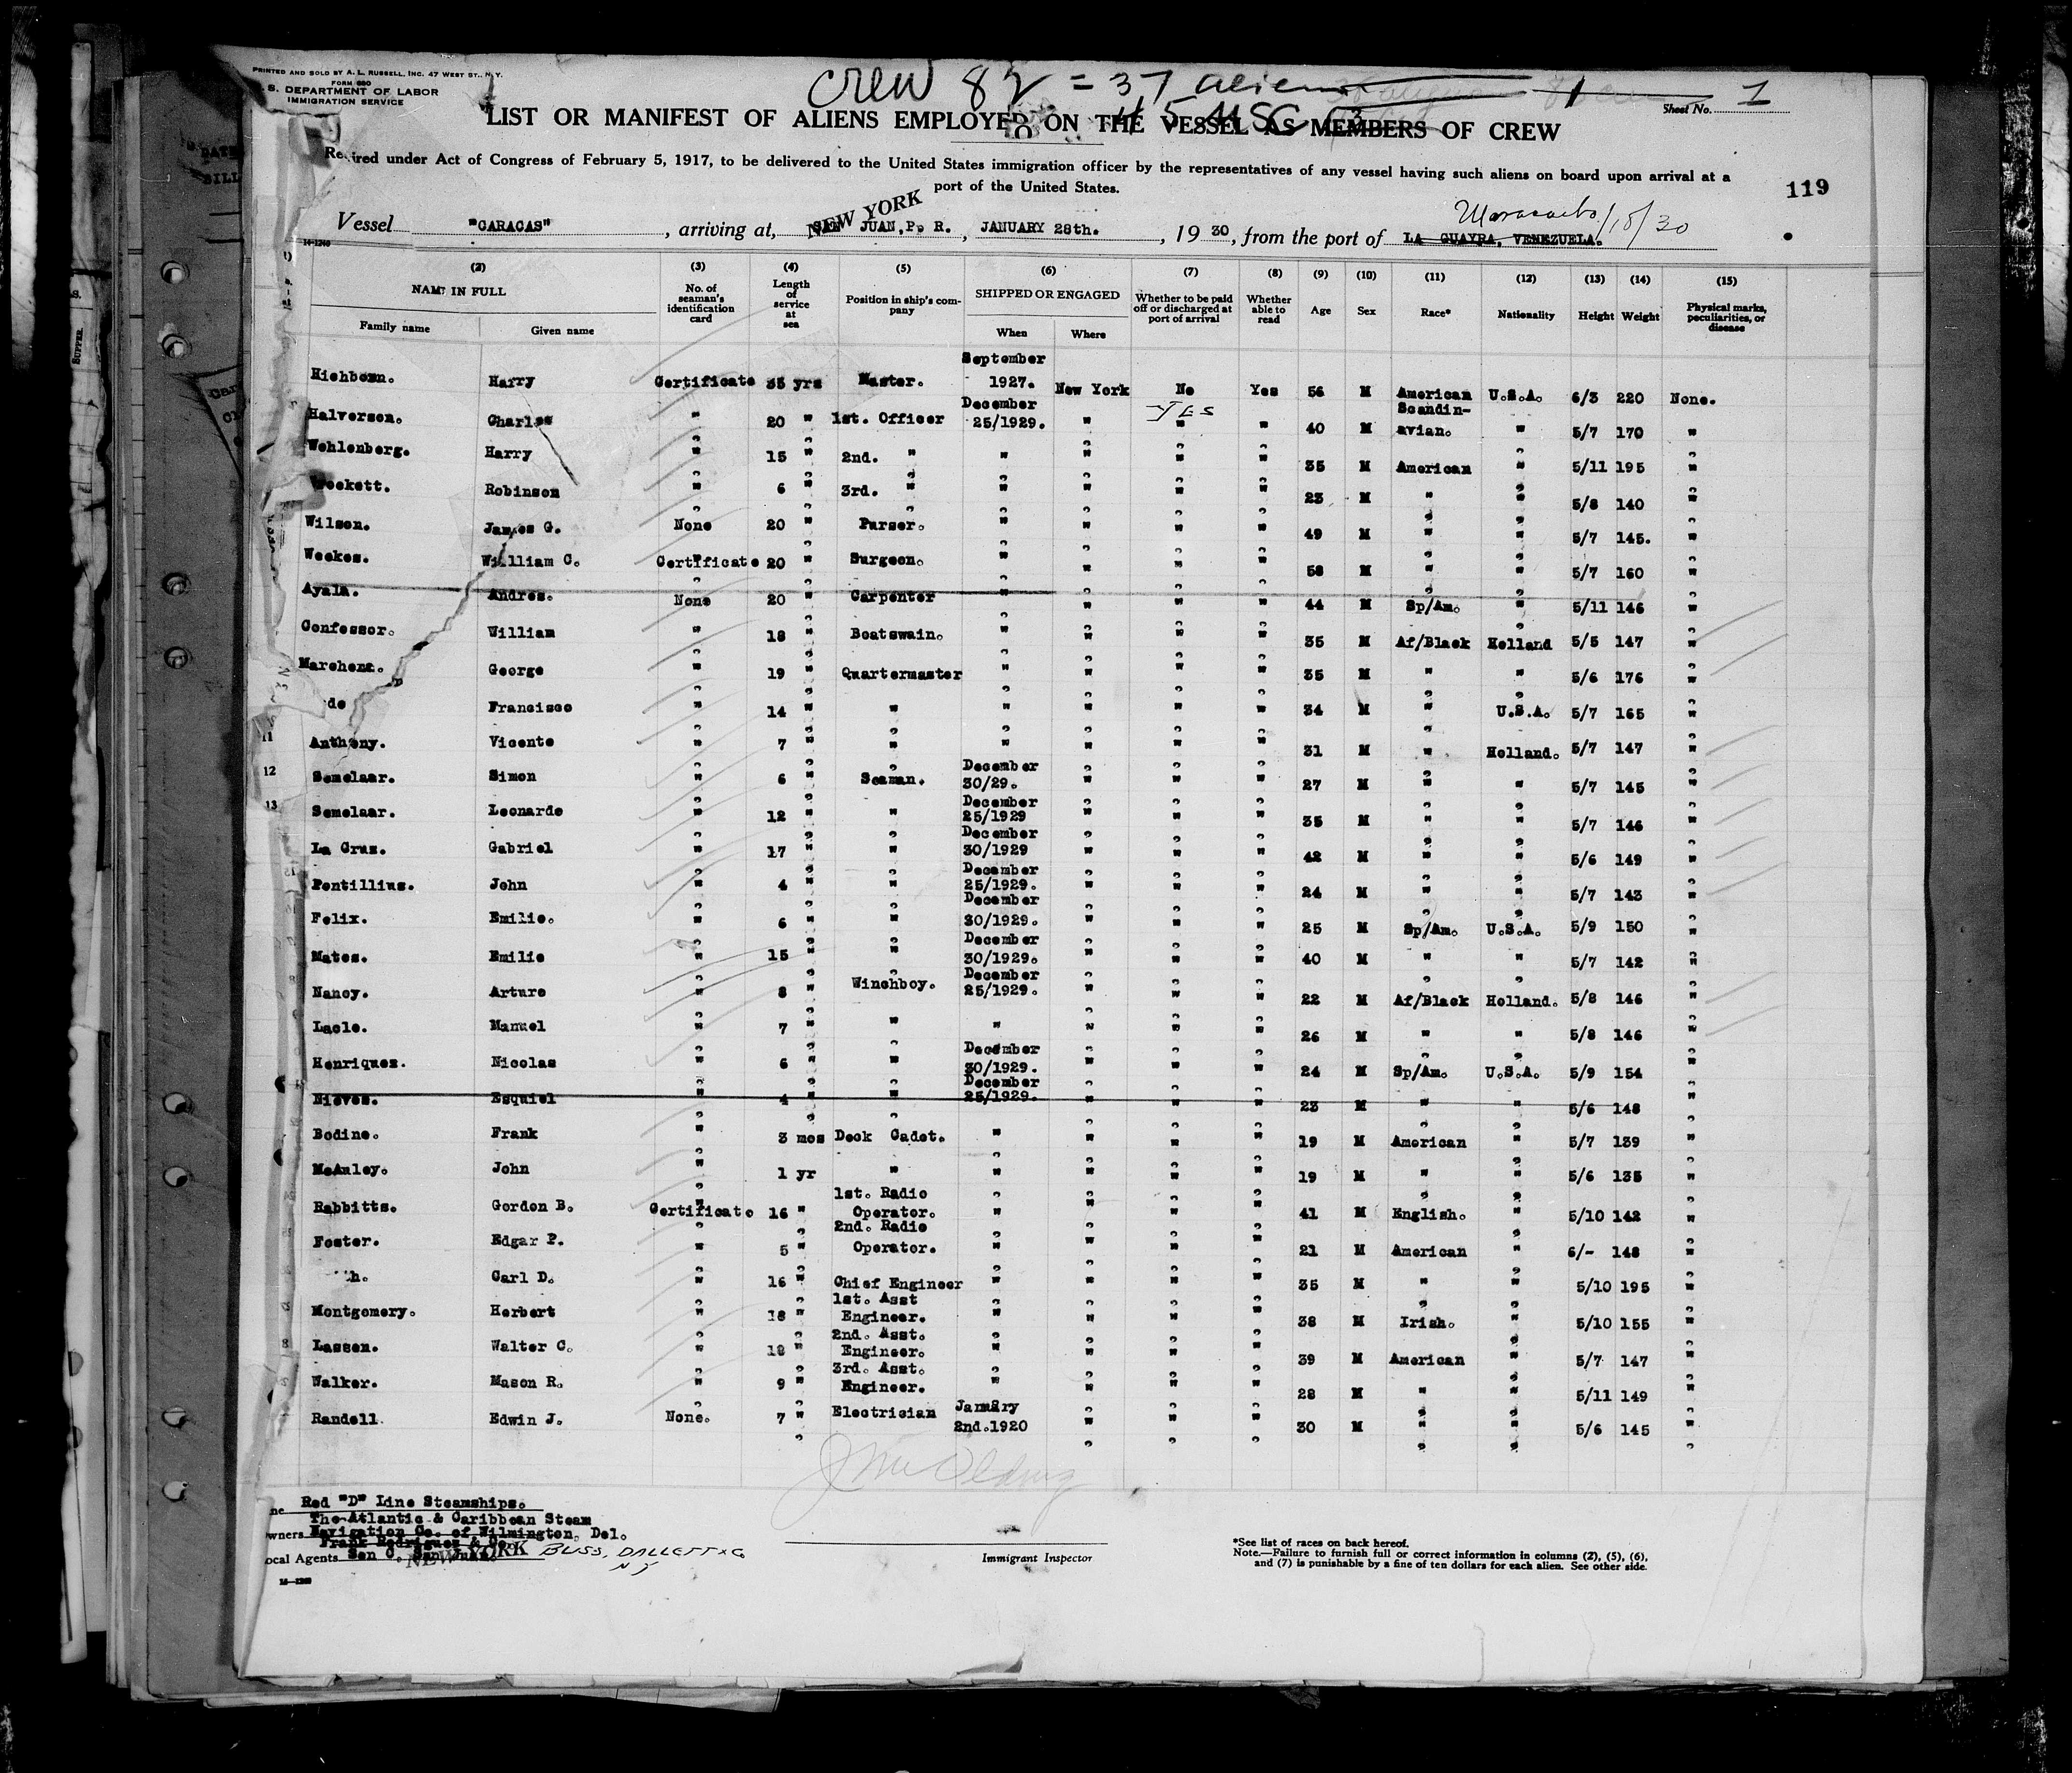 PRINTED AND SOLD BY A. L. RUSSELL, INC. 47 WEST ST., N.Y.
FORM 680
S. DEPARTMENT OF LABOR
IMMIGRATION SERVICE
Crew 82 = 37 aliens
45 USC
Sheet No. 1
LIST OR MANIFEST OF ALIENS EMPLOYED ON THE VESSEL AS MEMBERS OF CREW
Required under Act of Congress of February 5, 1917, to be delivered to the United States immigration officer by the representatives of any vessel having such aliens on board upon arrival at a
port of the United States.
119
Vessel "CARACAS", arriving at, NEW YORK SAN JUAN, P. R., JANUARY 28th., 1930, from the port of LA GUAYRA, VENEZUELA. Maracaibo 1/18/30
14-1240
(2) (3) (4) (5) (6) (7) (8) (9) (10) (11) (12) (13) (14) (15)
NAME IN FULL No. of seaman's identification card Length of service at sea Position in ship's company SHIPPED OR ENGAGED Whether to be paid off or discharged at port of arrival Whether able to read Age Sex Race* Nationality Height Weight Physical marks, peculiarities, or disease
Family name Given name When Where
Hichborn. Harry Certificate 35 yrs Master. September 1927. New York No Yes 56 M American U.S.A. 6/3 220 None.
YES
Halverson. Charles " 20 " 1st. Officer December 25/1929. " " " 40 M Scandin-avian. " 5/7 170 "
Wehlenberg. Harry " 15 " 2nd. " " " " " 35 M American " 5/11 195 "
Robinson " 6 " 3rd. " " " " " 23 M " " 5/8 140 "
Wilson. James G. None 20 " Purser. " " " " 49 M " " 5/7 145. "
Weekes. William C. Certificate 20 " Surgeon. " " " " 58 M " " 5/7 160 "
Ayala. Andres. None 20 " Carpenter " " " " 44 M Sp/Am. " 5/11 146 "
Confessor. William " 18 " Boatswain. " " " " 35 M Af/Black Holland 5/5 147 "
Marchena. George " 19 " Quartermaster " " " " 35 M " " 5/6 176 "
de Francisco " 14 " " " " " " 34 M " U.S.A. 5/7 165 "
11 Anthony. Vicente " 7 " " " " " " 31 M " Holland. 5/7 147 "
12 Semelaar. Simon " 6 " Seaman. December 30/29. " " " 27 M " " 5/7 145 "
13 Semelaar. Leonardo " 12 " " December 25/1929 " " " 35 M " " 5/7 146 "
La Cruz. Gabriel " 17 " " December 30/1929 " " " 42 M " " 5/6 149 "
Pontillius. John " 4 " " December 25/1929. " " " 24 M " " 5/7 143 "
Felix. Emilio. " 6 " " December 30/1929. " " " 25 M Sp/Am. U.S.A. 5/9 150 "
Matos. Emilio " 15 " " December 30/1929. " " " 40 M " " 5/7 142 "
Nancy. Arturo " 8 " Winchboy. December 25/1929. " " " 22 M Af/Black Holland. 5/8 146 "
Lacle. Manuel " 7 " " " " " " 26 M " " 5/8 146 "
Henriquez. Nicolas " 6 " " December 30/1929. " " " 24 M Sp/Am. U.S.A. 5/9 154 "
Nieves. Esquiel " 4 " " December 25/1929. " " " 23 M " " 5/6 148 "
Bodine. Frank " 3 mos Deck Cadet. " " " " 19 M American " 5/7 139 "
McAuley. John " 1 yr " " " " " 19 M " " 5/6 135 "
Rabbitts. Gordon B. Certificate 16 " 1st. Radio Operator. " " " " 41 M English. " 5/10 142 "
Foster. Edgar P. " 5 " 2nd. Radio Operator. " " " " 21 M American " 6/- 148 "
h. Carl D. " 16 " Chief Engineer " " " " 35 M " " 5/10 195 "
Montgomery. Herbert " 18 " 1st. Asst Engineer. " " " " 38 M Irish. " 5/10 155 "
Lassen. Walter C. " 18 " 2nd. Asst. Engineer. " " " " 39 M American " 5/7 147 "
Walker. Mason R. " 9 " 3rd. Asst. Engineer. " " " " 28 M " " 5/11 149 "
Randell Edwin J. None. 7 " Electrician January 2nd.1920 " " " 30 M " " 5/6 145 "
Red "D" Line Steamships.
The Atlantic & Caribbean Steam
wners Navigation Co. of Wilmington, Del.
Frank Rodriguez & Co.
ocal Agents San Juan. NEW YORK BLISS, DALLETT & Co
NY
14-1240
Immigrant Inspector
*See list of races on back hereof.
Note.—Failure to furnish full or correct information in columns (2), (5), (6),
and (7) is punishable by a fine of ten dollars for each alien. See other side.